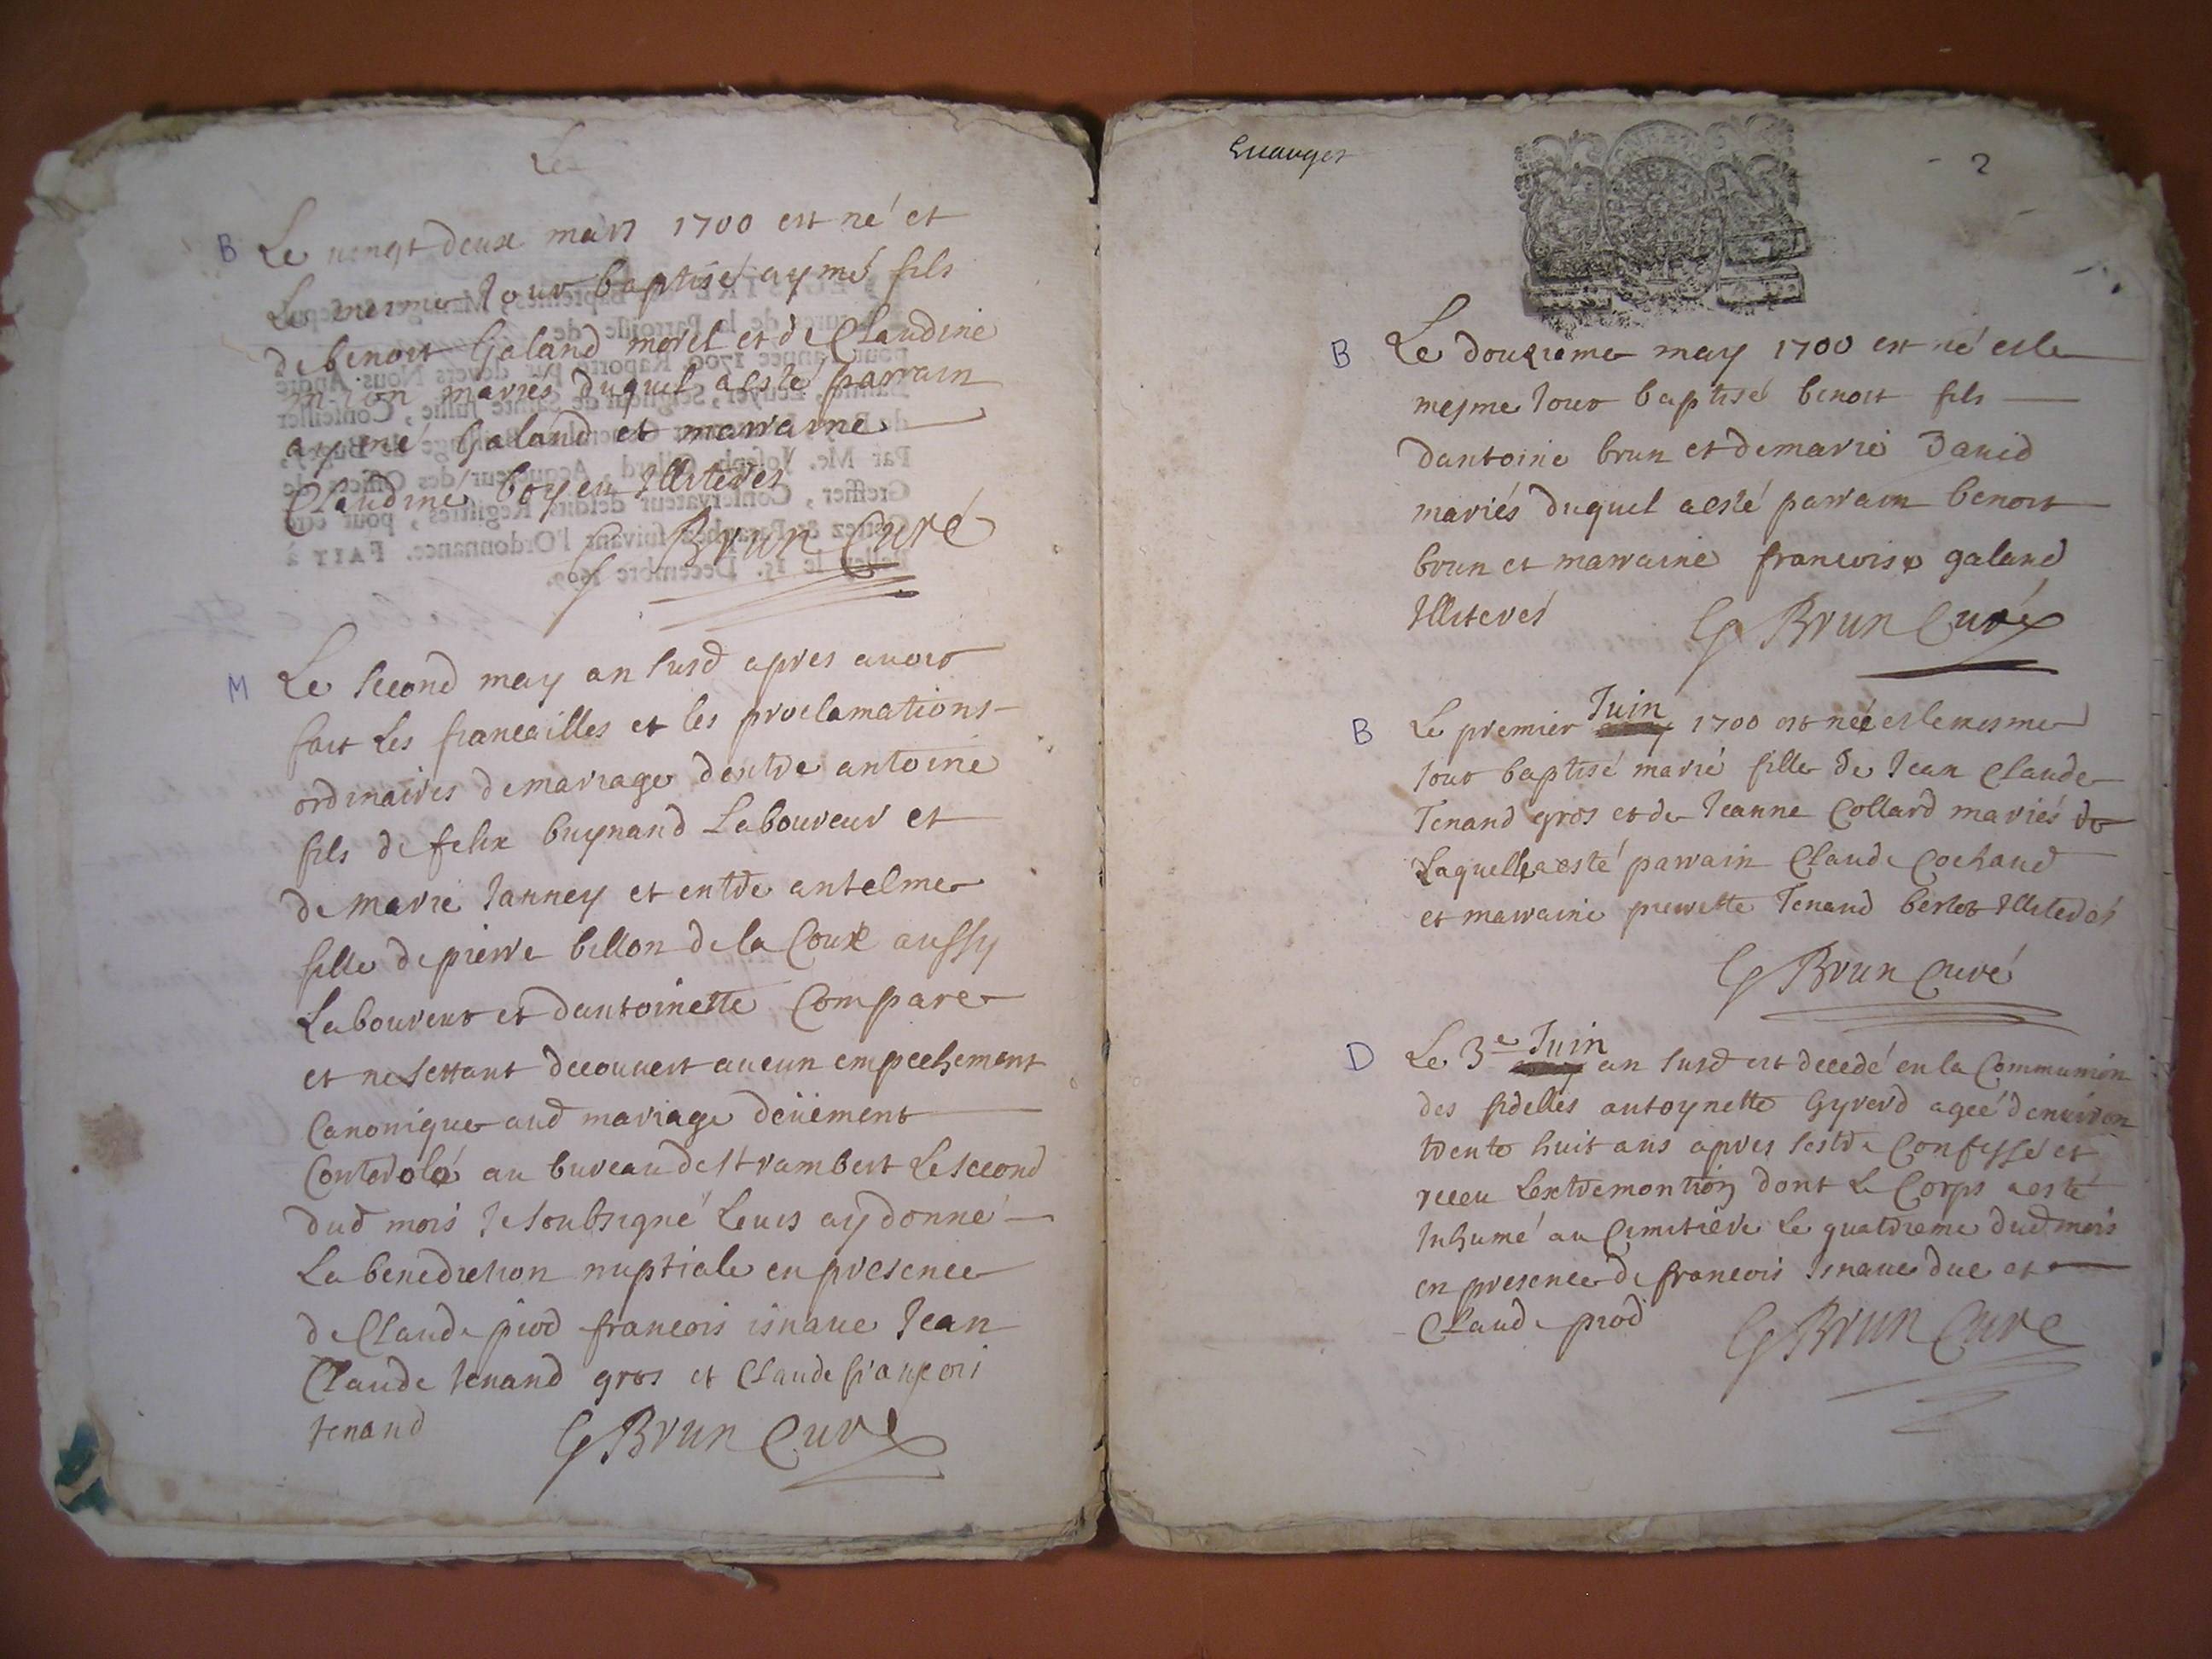 Le
B Le vengt deux mars 1700 est né et
Le mesme Jour baptisé aymé fils
de benoit Galand morel et de Claudine
mariés duquel a esté parrain
aymé Galand et marraine
Claudine boyer Illiterés
G Brun Curé
M Le second may an susd apres avoir
fait Les fiancailles et les proclamations
ordinaires de mariage dentre antoine
fils de felix buynand Laboureur et
de marie Janney et entre antelme
fille de pierre billon de la Coux aussy
Laboureur et dantoinette Compare
et ne settant decouvert aucun empechement
Canonique aud mariage deüement
Conterolé au bureau de st rambert Le second
dud mois Je soubsigné Leurs ay donné
La benediction nuptiale en presence
de Claude piod francois isnaue Jean
Claude tenand gros et Claude françois
tenand G Brun Curé
Evauges
2
B Le douzieme may 1700 est né et le
mesme Jour baptisé benoit fils
dantoine brun et de marie David
mariés duquel a esté parrain benoit
brun et marraine francoise galand
Illiterés G Brun Curé
B Le premier Juin 1700 est née et le mesme
Jour baptisé marie fille de Jean Claude
Tenand gros et de Jeanne Collard mariés de
Laquelle a esté parrain Claude Cochand
et marraine pierrette Tenand berlet Illiterés
G Brun Curé
D Le 3e Juin an susd est decedé en la Communion
des fidelles antoynette Gyrerd agée denviron
trente huit ans apres sestre Confessé et
receu Lextremontion dont Le Corps a esté
Inhumé au Cimitiere Le quatrieme dud mois
en presence de francois Isnaue duc et
Claude piod G Brun Curé